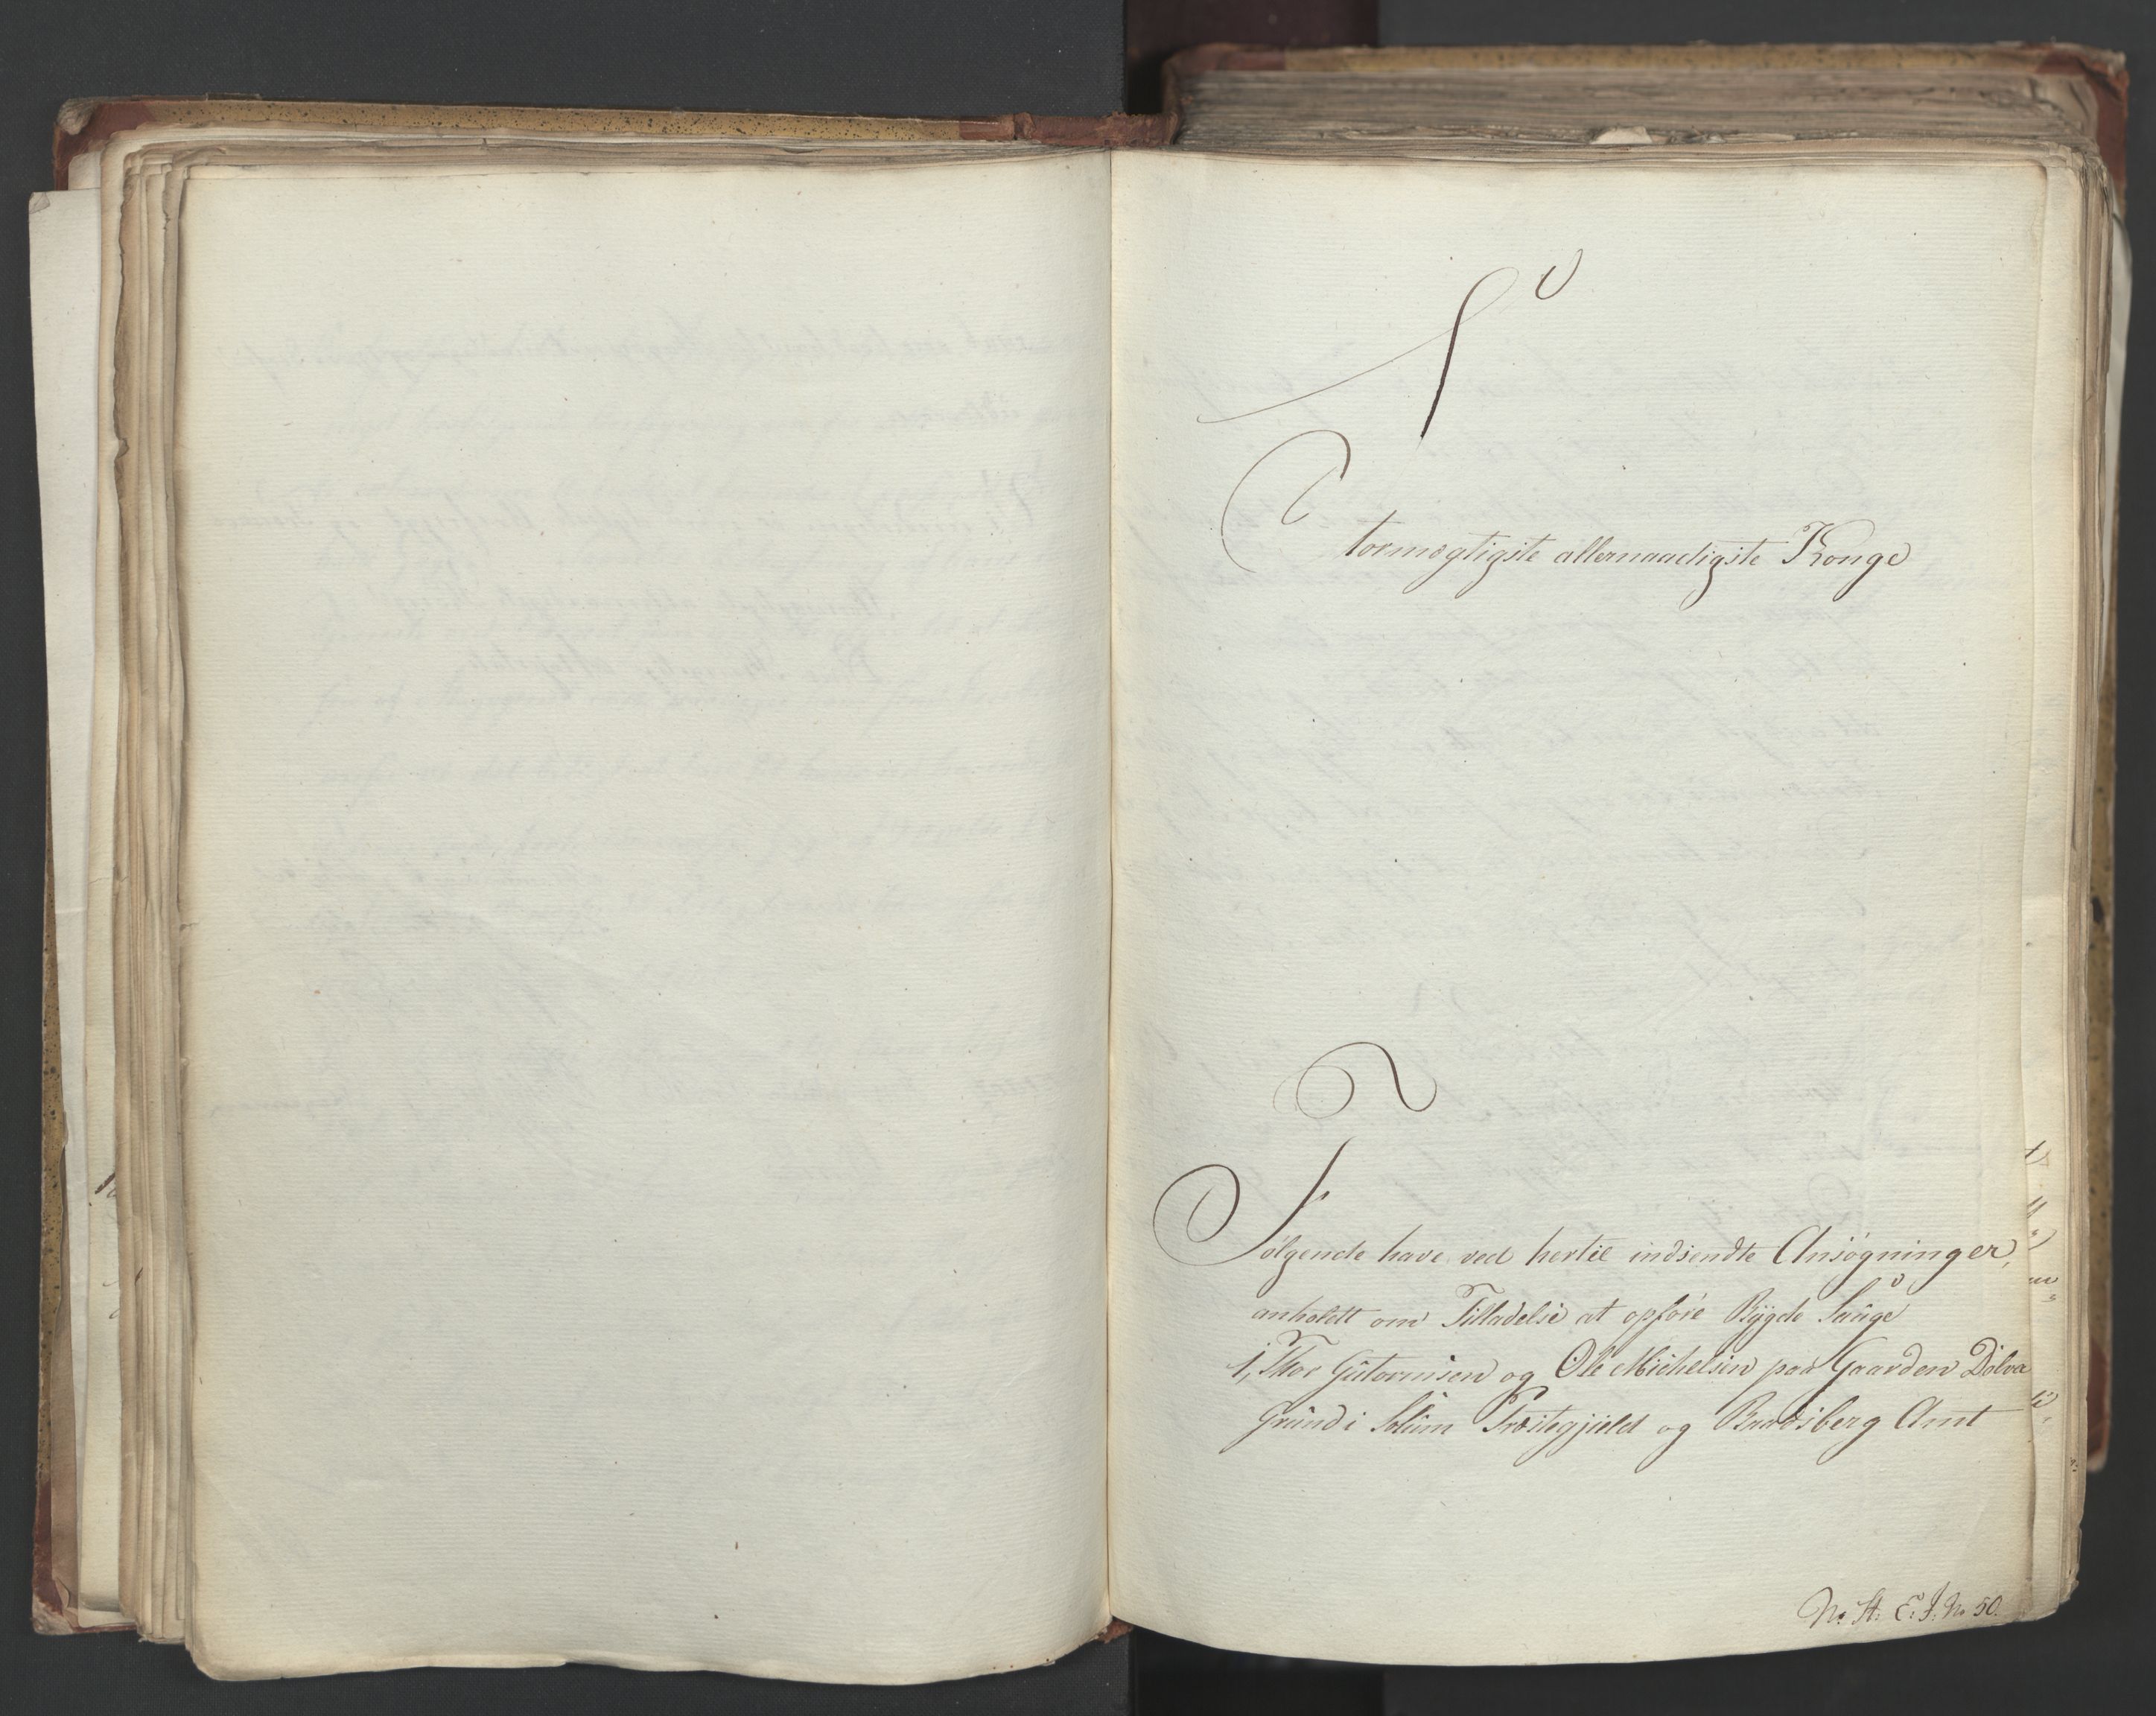 Stormægtigste allernaadigste Konge
Følgende have ved hertil indsendte Ansøgninger,
anholdt om Tilladelse at opføre Bÿgde Sauge
1, Thor Gutormsen og Ole Michelsen paa Gaarden Dolva
Grund i Solum Præstegjield og Bradsberg Amt
N: St: E: J: No 50.